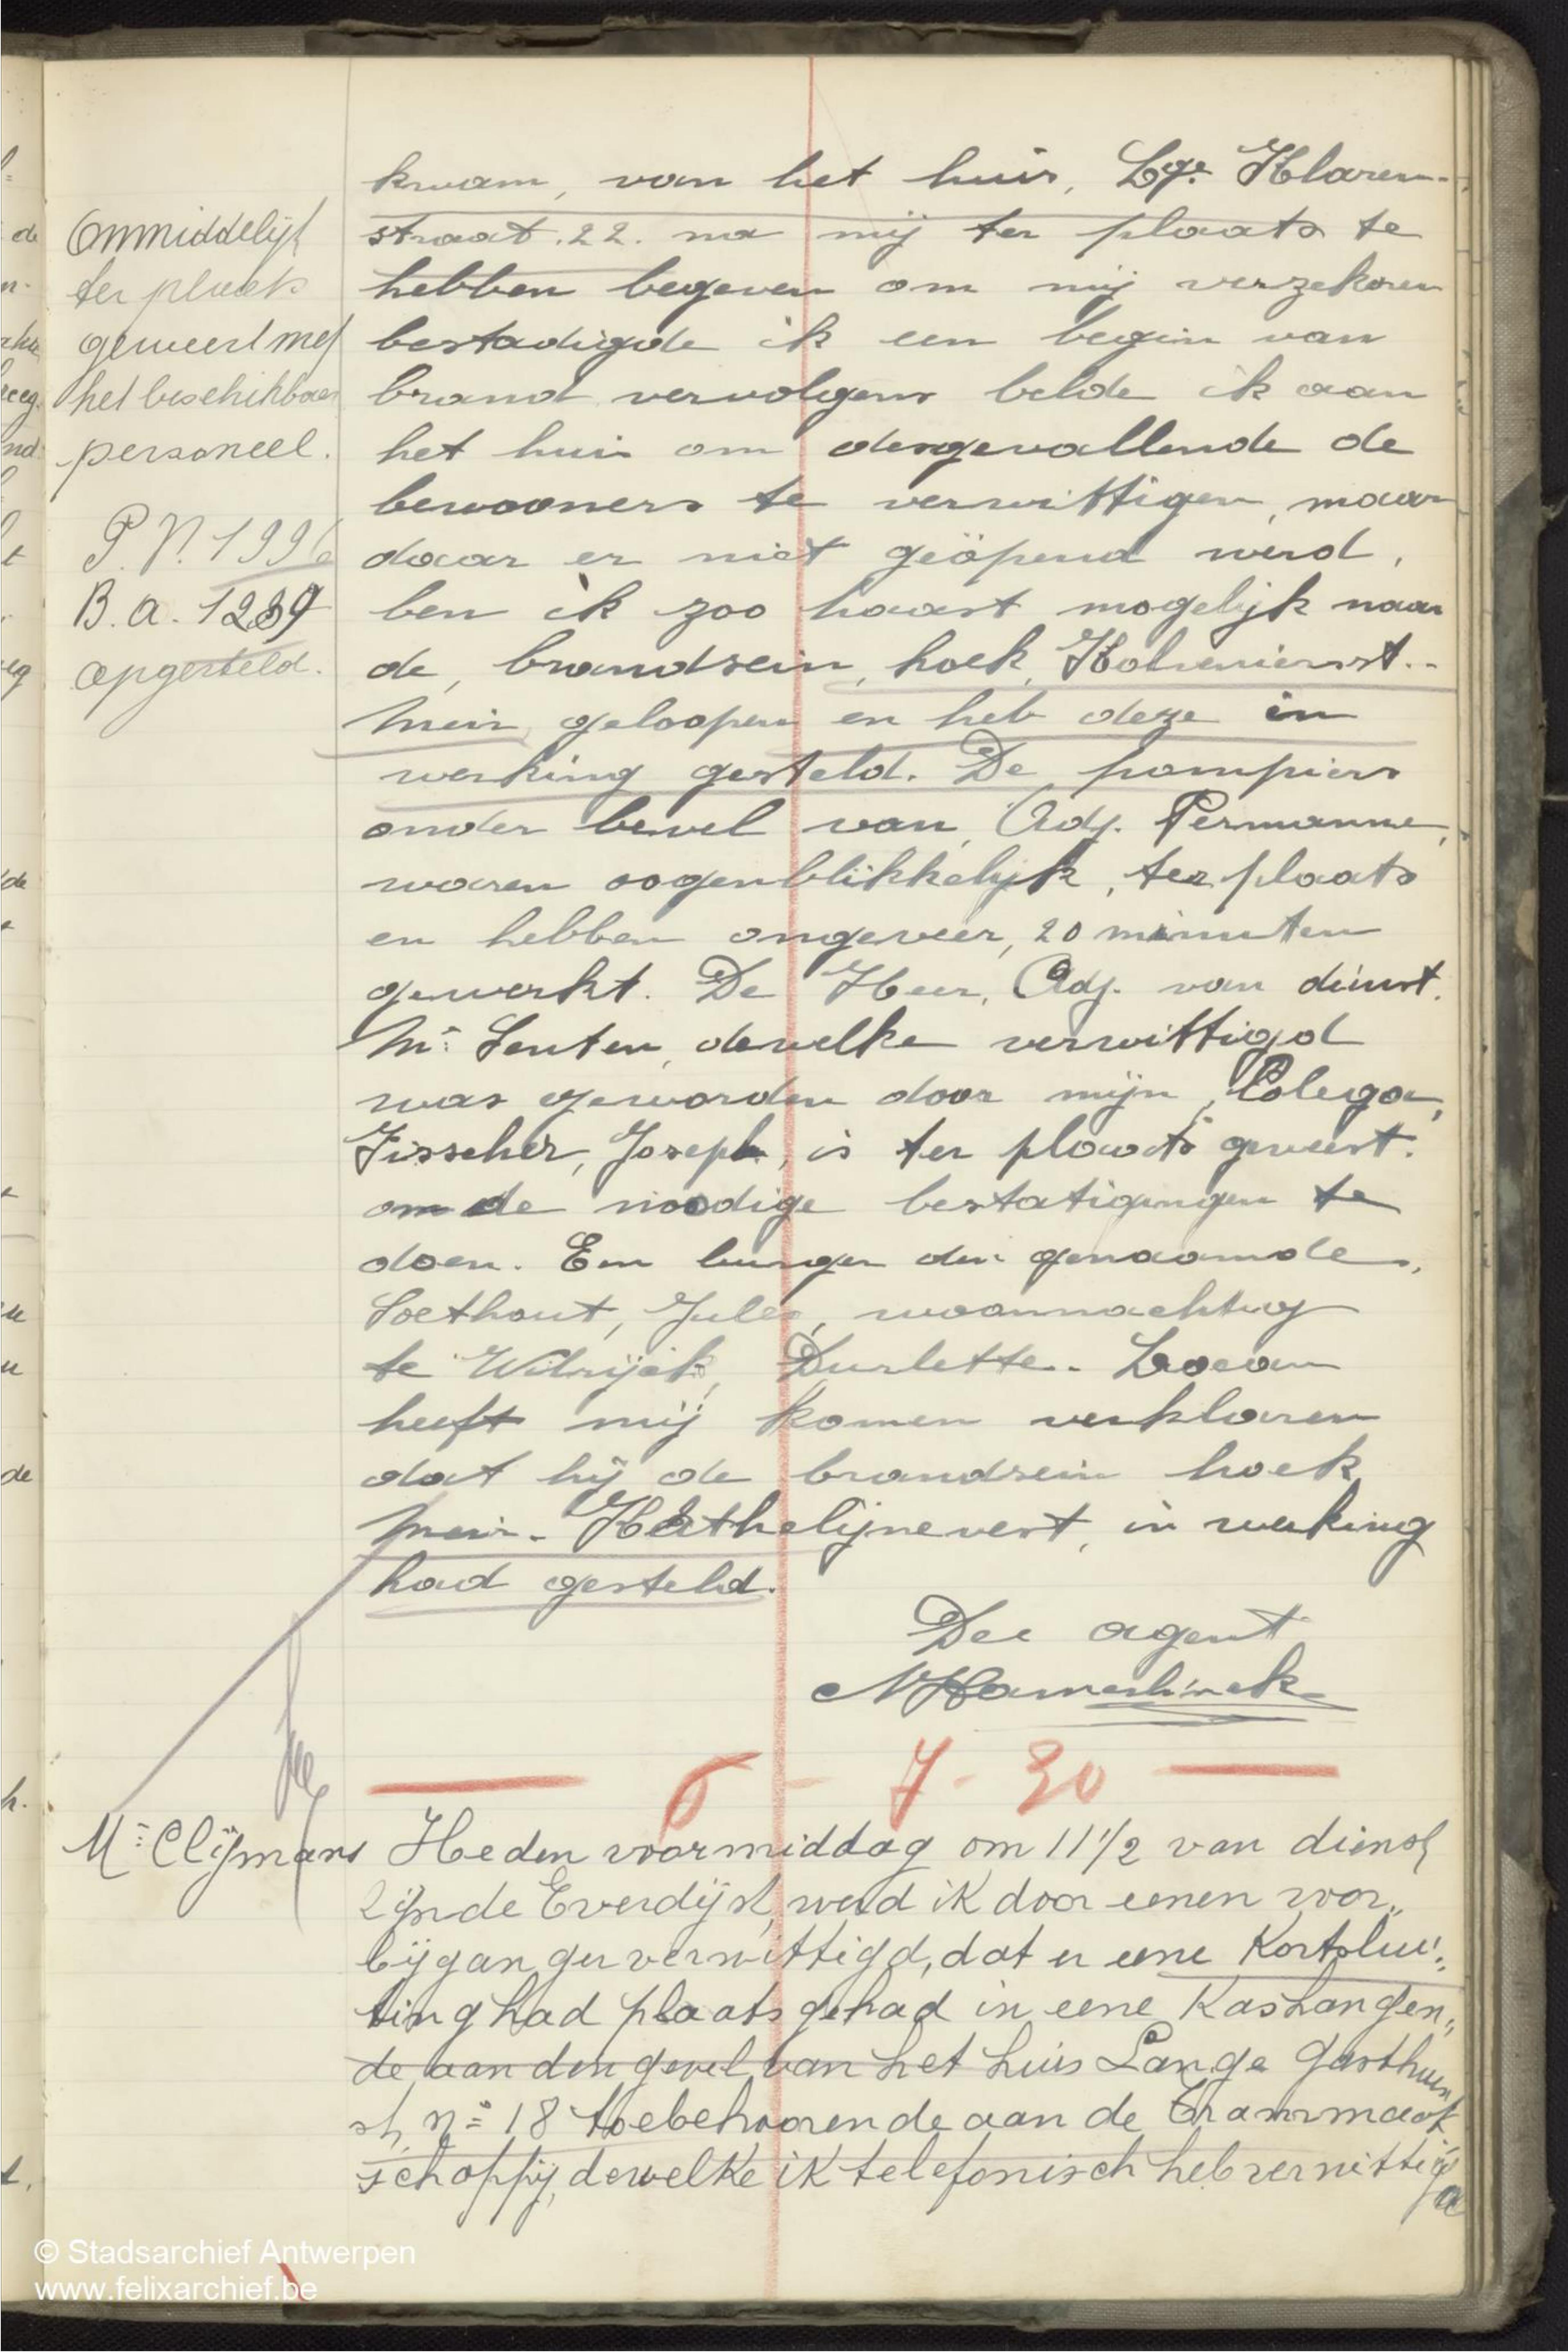 kwam, van het huis, Lge. Klaren-
straat. 22. na mij ter plaats te
hebben begeven om mij verzekeren
bestadigde ik een begin van
brand vervolgens belde ik aan
het huis om desgevallende de
bewooners te verwittigen, maar
daar er niet geöpend werd,
ben ik zoo haast mogelijk naar
de, brandsein, hoek, Kolveniersst.-
Meir, geloopen en heb deze in
werking gesteld. De pompiers
onder bevel van, Adj. Permanne,
waren oogenblikkelijk, ter plaats
en hebben ongeveer, 20 minuten
gewerkt. De Heer, Adj. van dienst.
Mr. Lenten, dewelke verwittigd
was geworden door mijn, Colega,
Fisscher, Joseph, is ter plaats geweest.
om de noodige bestatigingen te
doen. Een burger den genaamde,
Soethout, Jules, woonnachtig
te Wilrijck, Durlette. Laean
heeft mij komen verklaren
dat hij de brandsein hoek
Meir. Kathelijnevest, in werking
had gesteld.
Dee agent
Onmiddelijk
ter plaats
geweest met
het beschikbaar
personeel.
P.V. 1996
B.a. 1239
opgesteld.
6 - 7 - 30
Mr Clijmans
Heden voormiddag om 11 1/2 van dienst
zijnde Everdijst, werd ik door eenen voor„
bijganger verwittigd, dat er eene Kortslui„
ting had plaats gehad in eene Kashangen„
de aan den gevel van het huis Lange Gasthuis
st, n= 18 toebehoorende aan de Trammaat
schappij, dewelke ik telefonisch heb verwittigd
© Stadsarchief Antwerpen
www.felixarchief.be